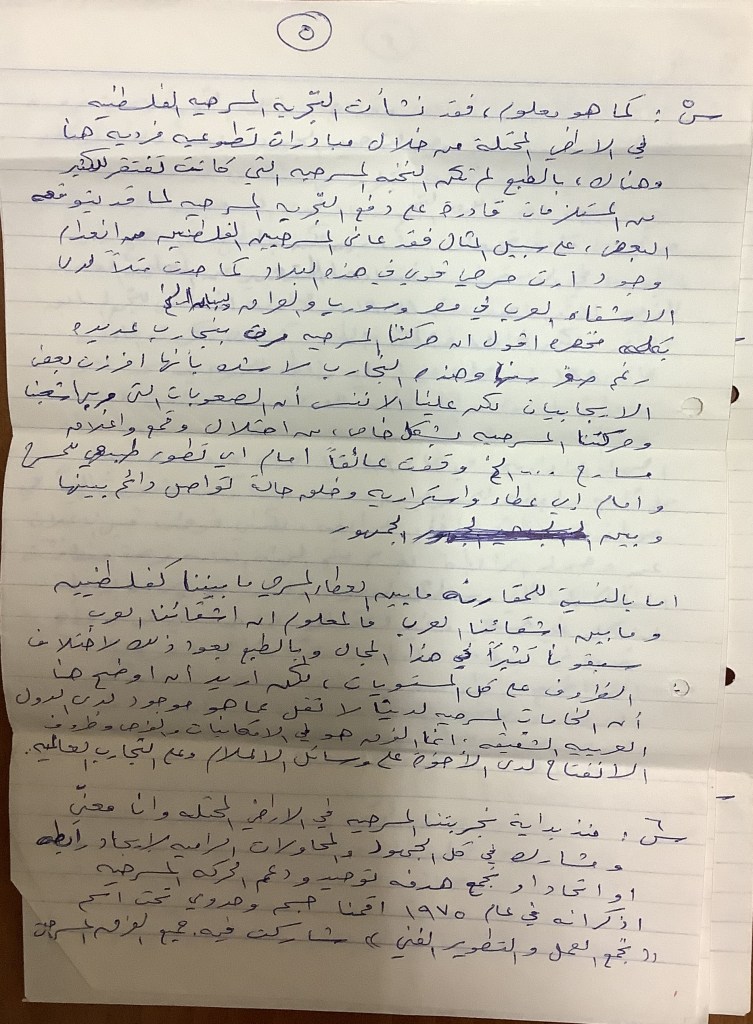 ٥
س٥: كما هو معلوم، فقد نشأت التجربة المسرحيه الفلسطنيه
في الاراضي المحتلة من خلال مبادرات تطوعيه فرديه هنا
وهناك، بالطبع لم تكن النخبه المسرحيه التي كانت تفتقر للكثير
من المستلزمات قادرة على دفع التجربه المسرحيه لما قد يتوقعه
البعض، على سبيل المثال فقد عانى المسرحيين الفلسطنيين من انعدام
وجود ارث مسرحي قوي في هذه البلاد كما حدث مثلاً لدى
الاشقاء العرب في مصر وسوريا والعراق
بكلمه مختصره اقول ان حركتنا المسرحيه مرت بتجارب عديده
رغم صغر سنها وهذه التجارب لا شك بأنها افرزت بعض
الايجابيات لكن علينا الا ننسى أن الصعوبات التي
وحركتنا المسرحيه بشكل خاص، من احتلال وقمع واغلاق
مسارح ... الخ وقفت عائقاً امام اي تطور طبيعي للمسرح
وامام اي عطاء واستمراريه وخلق حالة تواصل دائم بينها
وبين الجمهور
اما بالنسبة للمقارنه ما بين العطاء المسرحي ما بيننا كفلسطنيين
وما بين اشقائنا العرب فالمعلوم ان اشقائنا العرب
سبقونا كثيراً في هذا المجال وبالطبع يعود ذلك لاختلاف
الظروف على كل المستويات، لكن اريد أن اوضح هنا
أن الخامات المسرحيه لدينا لا تقل عما هو موجود لدى الدول
العربيه الشقيقه، انما الفرق هو في الامكانيات والفرص وظروف
الانفتاح لدى الأخوة على وسائل الاعلام وعلى التجارب العالميه.
س٦: منذ بداية تجربتنا المسرحيه في الاراضي المحتله وانا معنيّ
ومشارك في كل الجهود والمحاولات الراميه لايجاد رابطه
او اتحاد او تجمع هدفه توحيد ودعم الحركه المسرحيه
اذكر انه في عام ١٩٧٥ اقمنا جسم وحدوي تحت اسم
"تجمع العمل والتطوير الفني" شاركت فيه جميع الفرق المسرحية